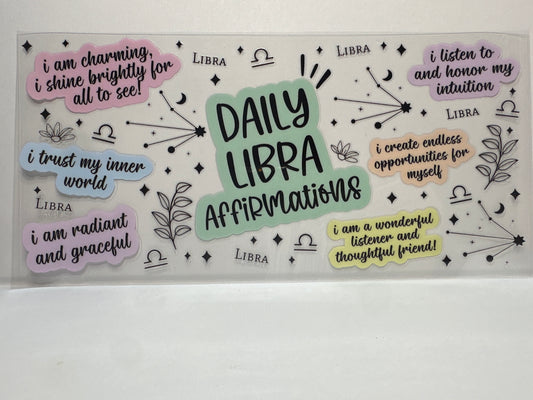 i am charming,
i shine brightly for
all to see!
LIBRA
LIBRA
i listen to
and honor my
intuition
DAILY
LIBRA
AFFIRMATIONS
LIBRA
i trust my inner
world
i create endless
opportunities for
myself
LIBRA
LIBRA
i am radiant
and graceful
i am a wonderful
listener and
thoughtful friend!
LIBRA